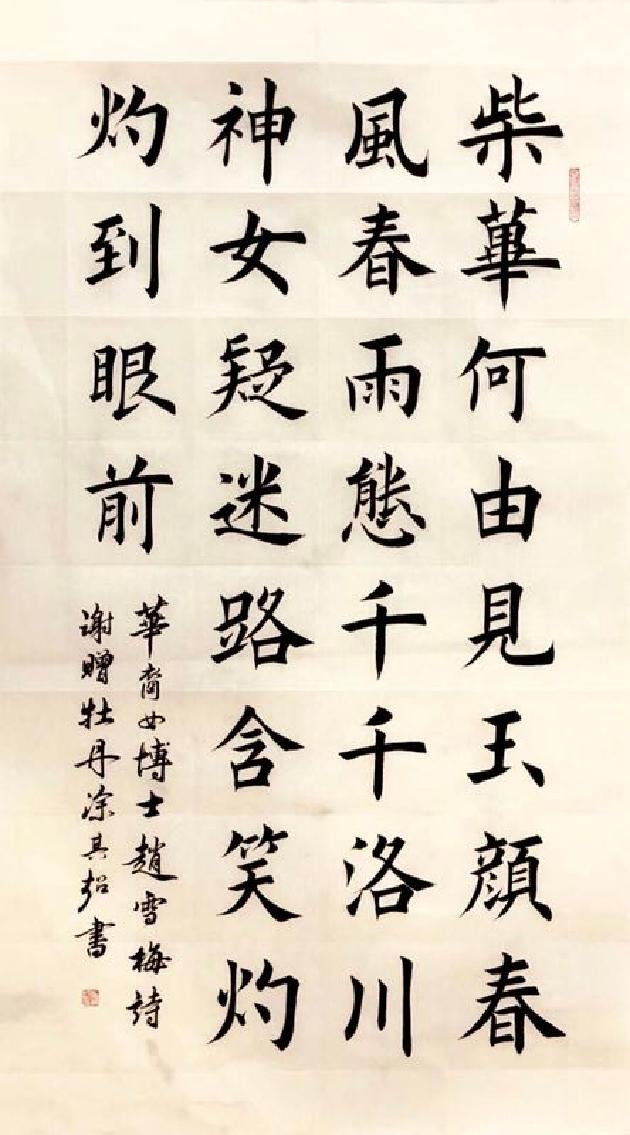 柴華何由見玉顏春
風春雨態千千洛川
神女疑迷路含笑灼
灼到眼前
華裔女博士趙雪梅詩
謝贈牡丹涂其超書